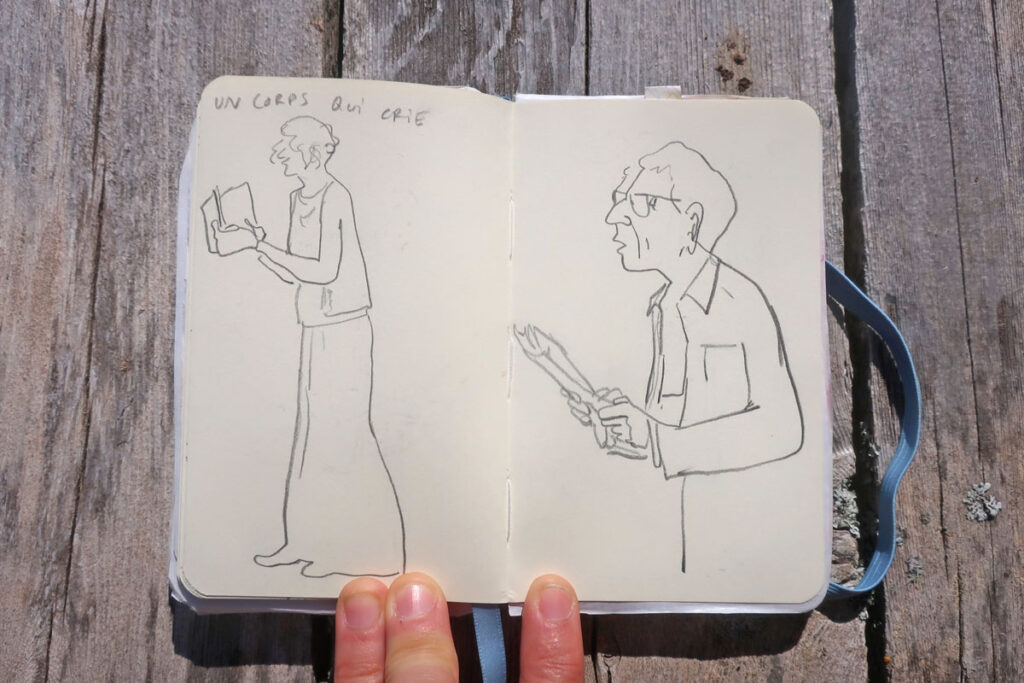 UN CORPS QUI CRIE